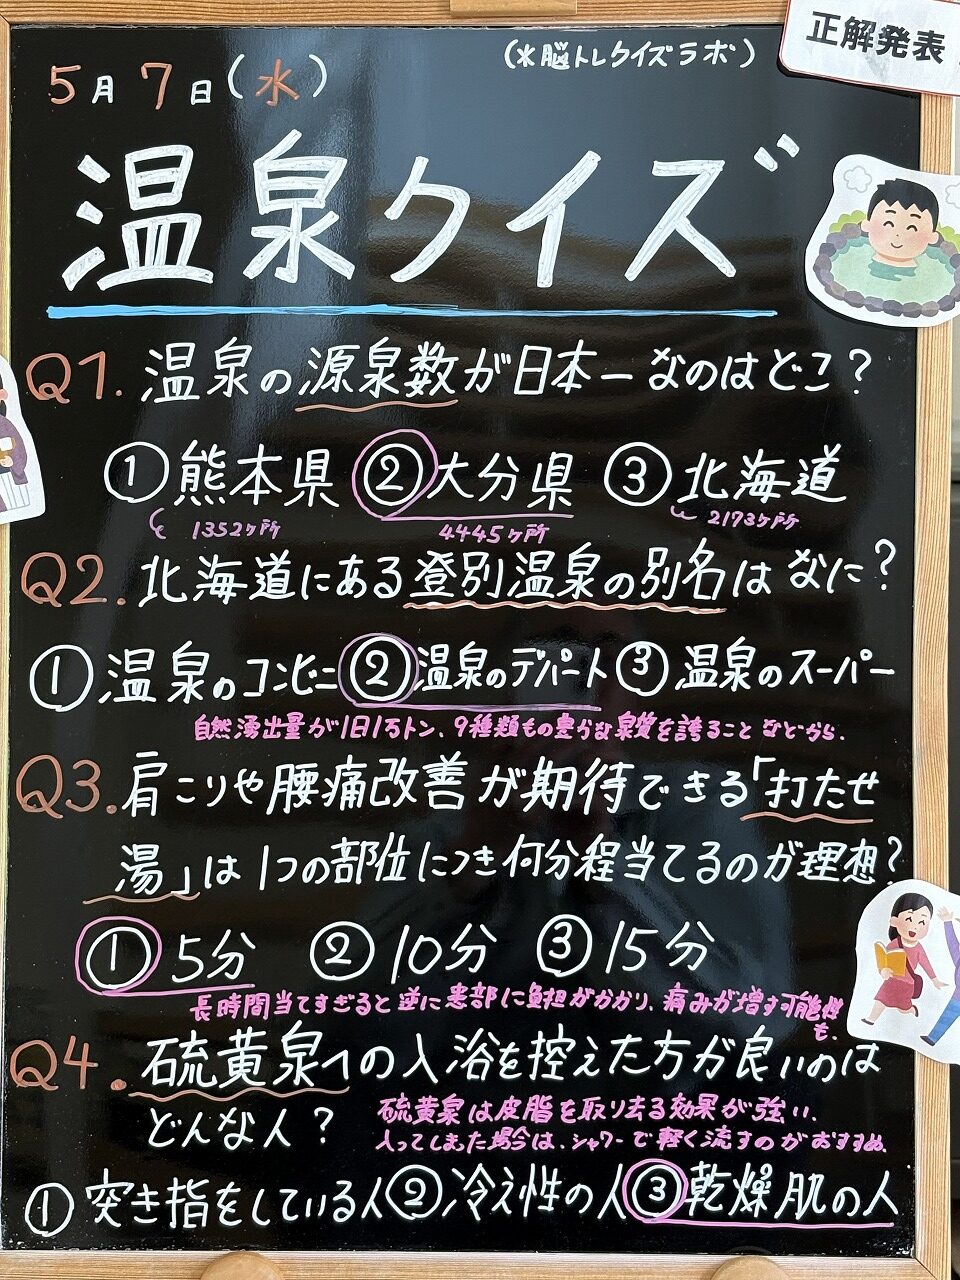 正解発表
(※脳トレクイズラボ)
5月7日(水)
温泉クイズ
Q1. 温泉の源泉数が日本一なのはどこ?
①熊本県 ②大分県 ③北海道
1352ヶ所 4445ヶ所 2173ヶ所
Q2. 北海道にある登別温泉の別名はなに?
①温泉のコンビニ ②温泉のデパート ③温泉のスーパー
自然湧出量が1日1万トン、9種類もの豊かな泉質を誇ることなどから.
Q3. 肩こりや腰痛改善が期待できる「打たせ
湯」は1つの部位につき何分程当てるのが理想?
①5分 ②10分 ③15分
長時間当てすぎると逆に患部に負担がかかり、痛みが増す可能性
も.
Q4. 硫黄泉への入浴を控えた方が良いのは
どんな人?
硫黄泉は皮脂を取り去る効果が強い、
入ってしまった場合は、シャワーで軽く流すのがおすすめ.
①突き指をしている人 ②冷え性の人 ③乾燥肌の人